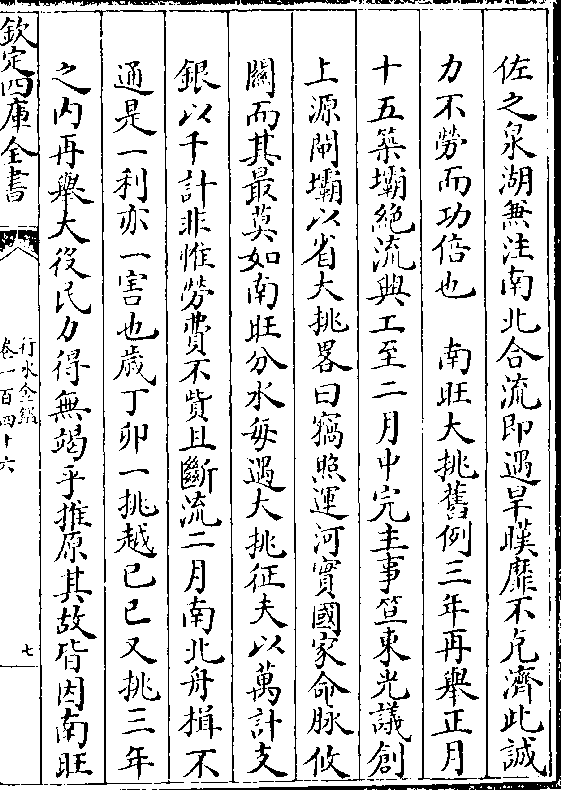 佐之泉湖無注南北合流即遇旱暵靡不克濟此誠
力不勞而功倍也　南旺大挑舊例三年再舉正月
十五築壩絶流興工至二月中完主事笪東光議創
上源閘壩以省大挑畧曰竊照運河實國家命脉攸
關而其最莫如南旺分水每遇大挑征夫以萬計支
銀以千計非惟勞費不貲且斷流二月南北舟揖不
通是一利亦一害也歲丁卯一挑越己巳又挑三年
之内再舉大役民力得無竭乎推原其故皆因南旺
欽定四庫全書
行水金鑑
卷一百四十六
七